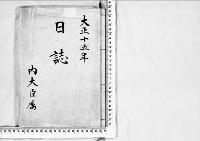 大正十五年
日誌
内大臣府